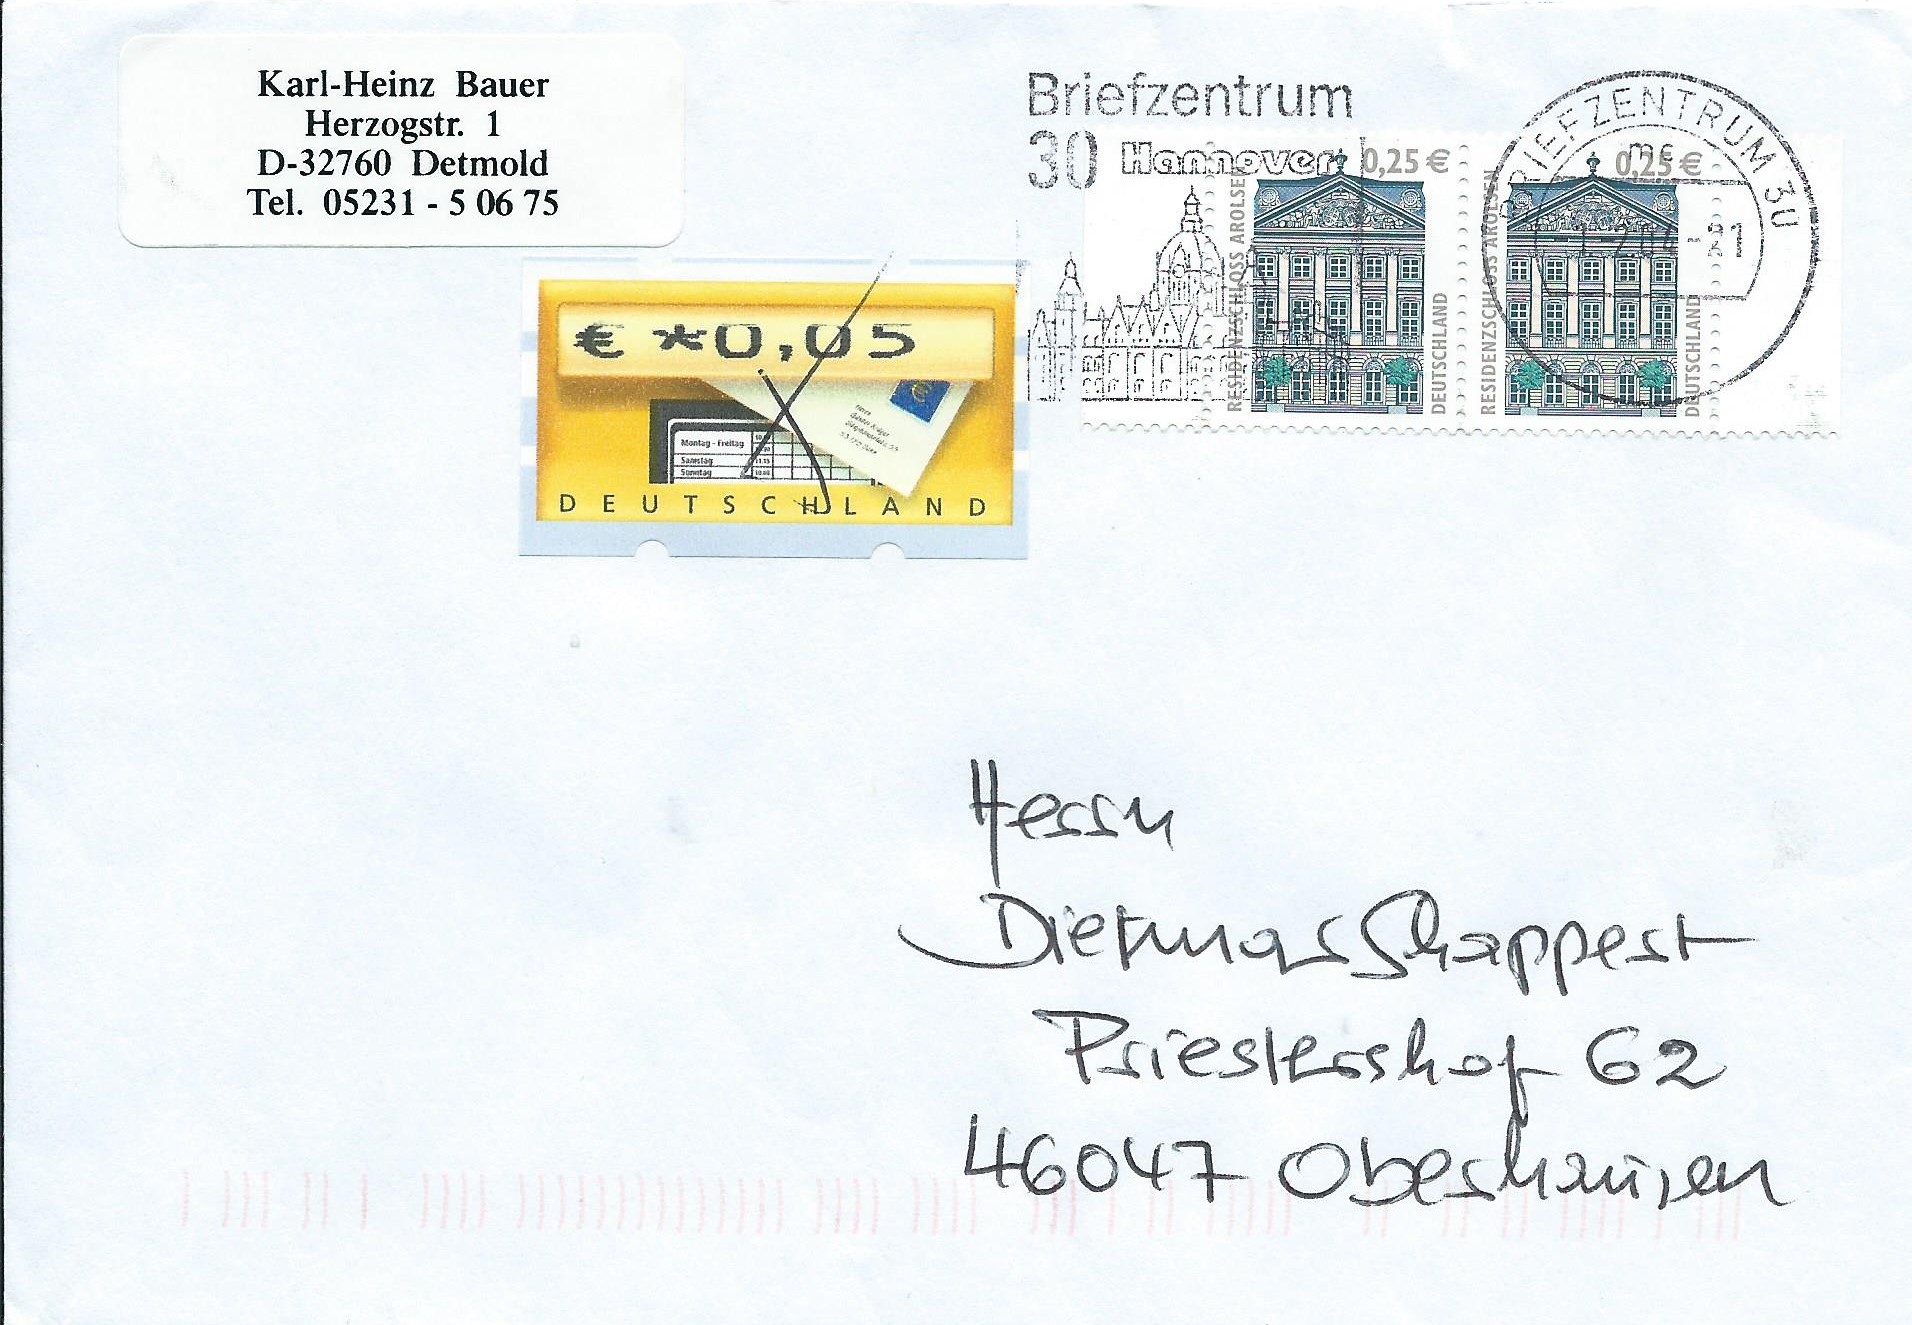 Karl-Heinz Bauer
Herzogstr. 1
D-32760 Detmold
Tel. 05231 - 5 06 75
Briefzentrum
30 Hannover
BRIEFZENTRUM 30
mc
-21
0,25 €
RESIDENZSCHLOSS AROLSEN
DEUTSCHLAND
0,25 €
RESIDENZSCHLOSS AROLSEN
DEUTSCHLAND
€ *0,05
Montag - Freitag
Samstag
Sonntag
DEUTSCHLAND
Herrn
Dietmar Schappert
Priestershof 62
46047 Oberhausen